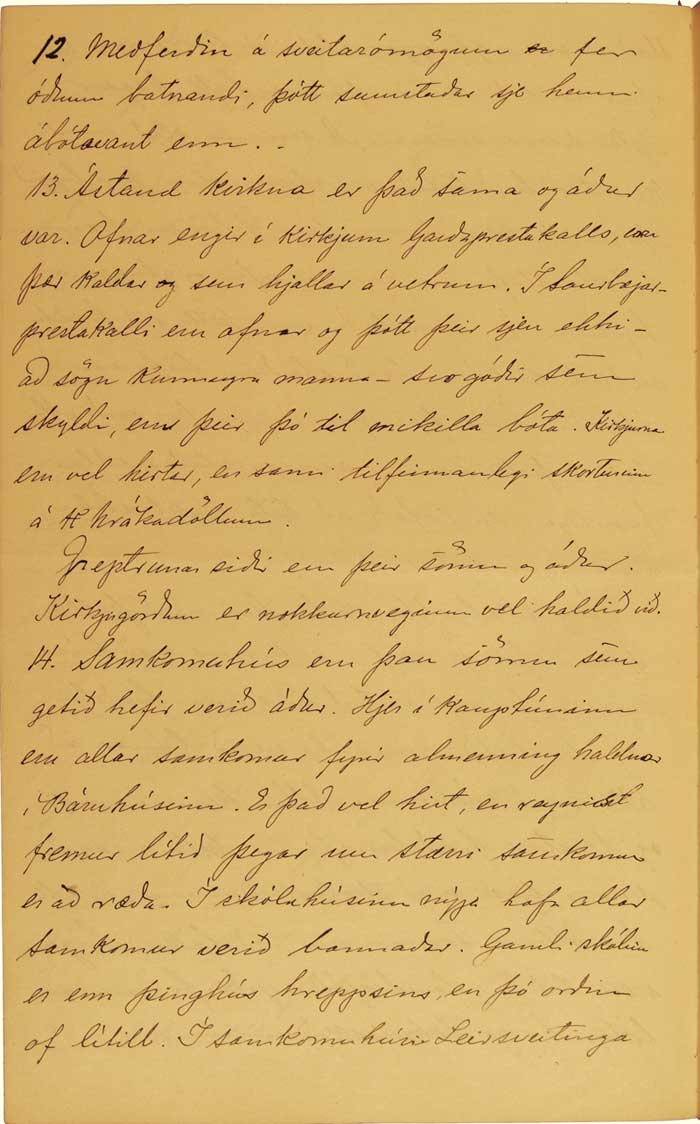 12. Meðferðin á sveitarómögum fer
óðum batnandi, þótt sumstaðar sje henni
ábótavant enn. -
13. Ástand kirkna er það sama og áður
var. Ofnar engir í kirkjum Garðaprestakalls,
þær kaldar og sem hjallar á vetrum. Í Saurbæjar-
prestakalli eru ofnar og þótt þeir sjeu ekki -
að sögn kunnugra manna - svo góðir sem
skyldi, eru þeir þó til mikilla bóta. Kirkjurnar
eru vel hirtar, en sami tilfinnanlegi skorturinn
á hrákadöllum.
Greptrunar siðir eru þeir sömu og áður.
Kirkjugörðum er nokkurnveginn vel haldið við.
14. Samkomuhús eru þau sömu sem
getið hefir verið áður. Hjer í kauptúninu
eru allar samkomur fyrir almenning haldnar
í Báruhúsinu. Er það vel hirt, en reynist
fremur lítið þegar um stærri samkomur
er að ræða. Í skólahúsinu nýja hafa allar
samkomur verið bannaðar. Gamli skólinn
er enn þinghús hreppsins, en þó orðinn
of lítill. Í samkomuhúsi Leirsveitinga